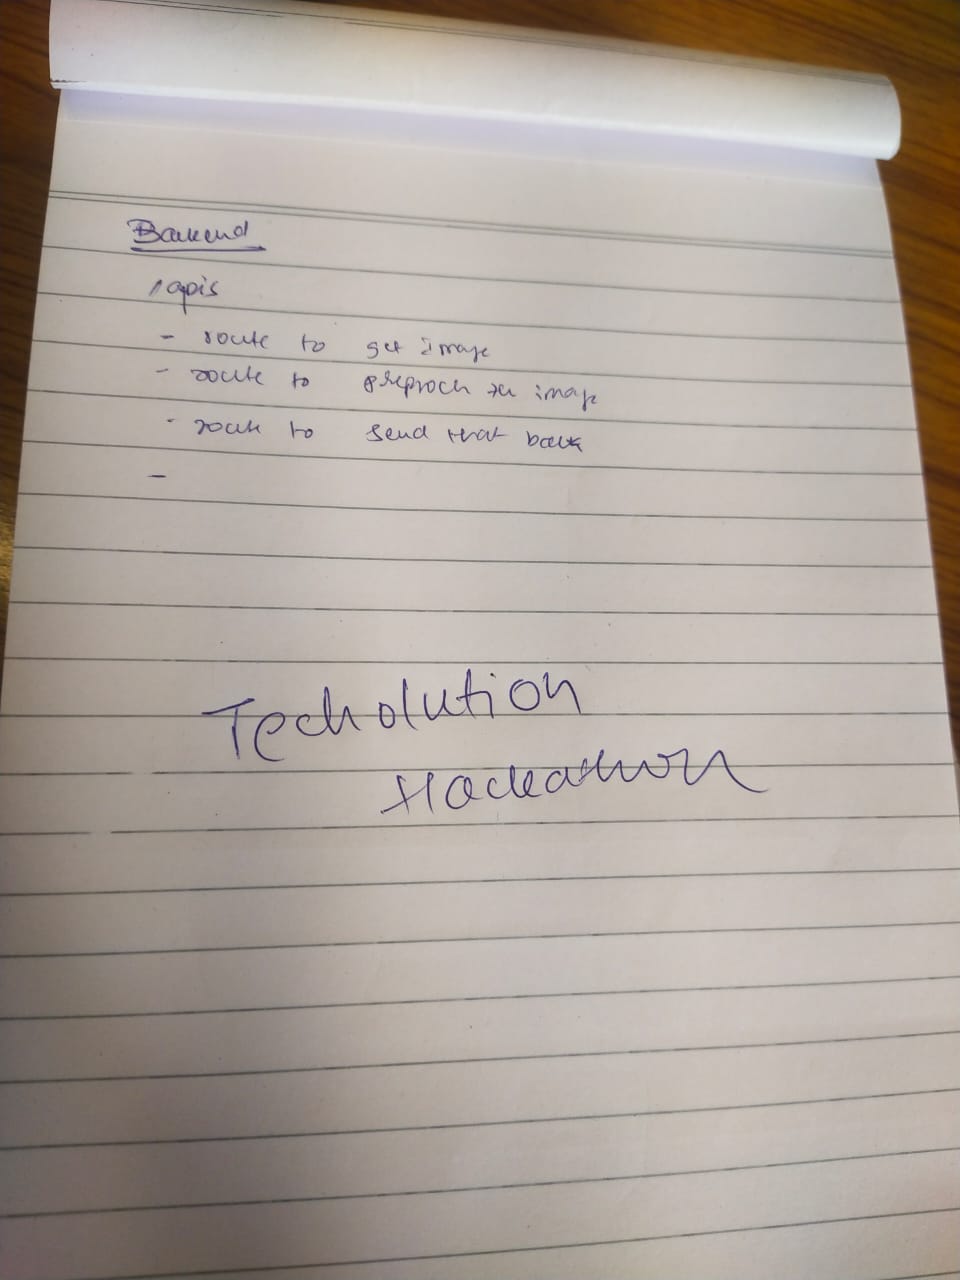 Backend
/apis
- route to get image
- route to preprocess the image
- route to send that back
-
Techolution
Hackathon